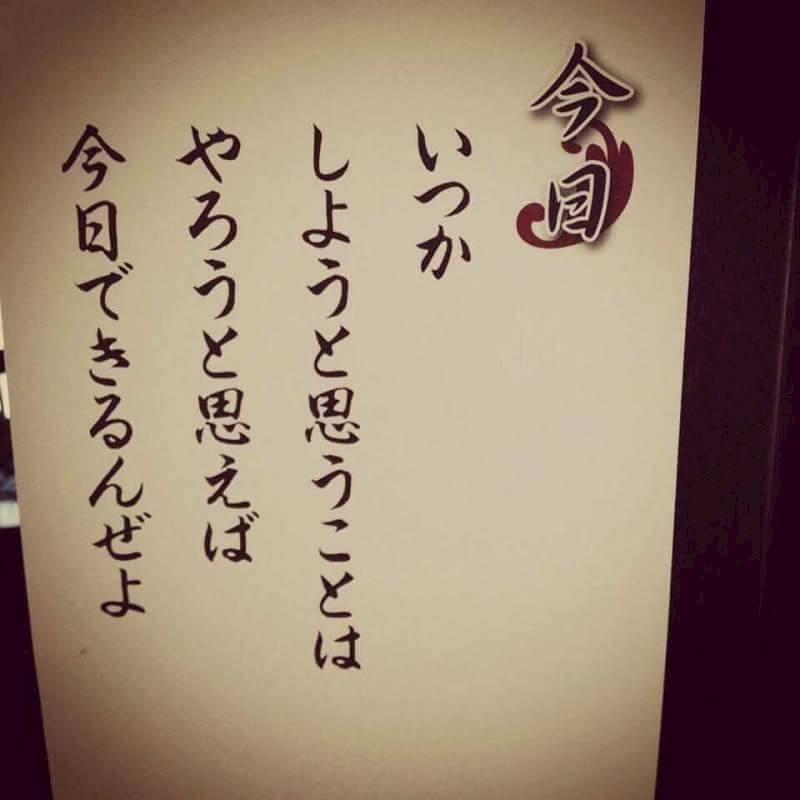 今日
いつか
しようと思うことは
やろうと思えば
今日できるんぜよ